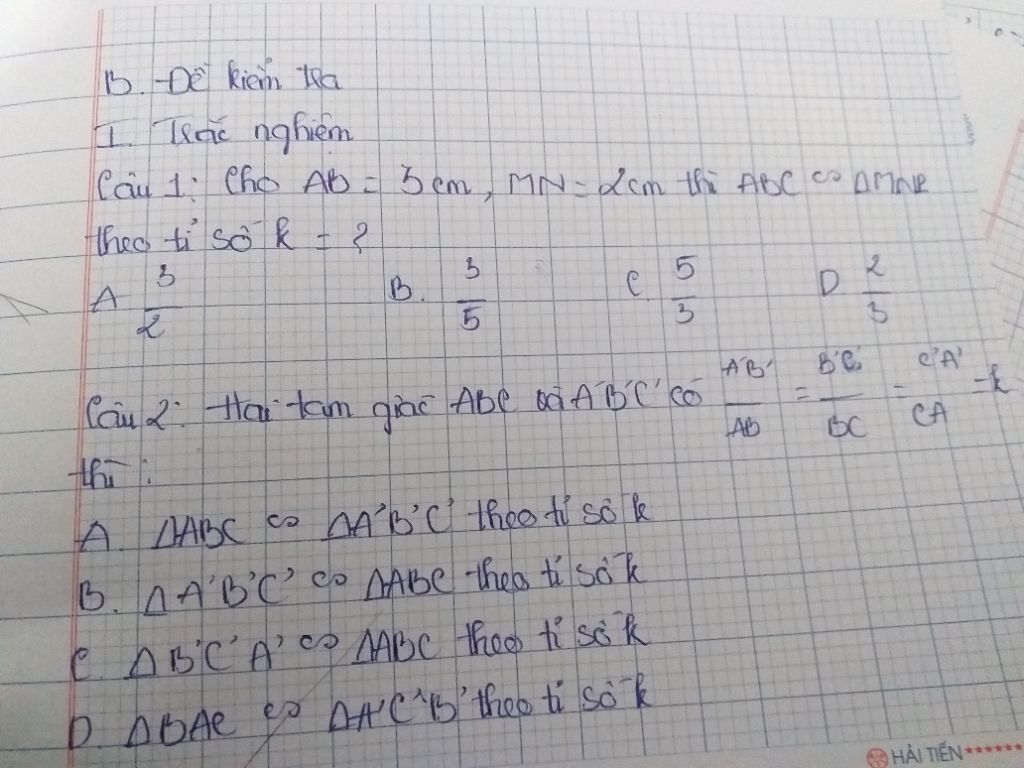 B. Đề kiểm tra
I. Trắc nghiệm
Câu 1: Cho AB = 3cm, MN = 2cm thì ABC ∽ ΔMNP
theo tỉ số k = ?
A 3/2 B. 3/5 C. 5/3 D 2/3
Câu 2: Hai tam giác ABC và A'B'C' có A'B'/AB = B'C'/BC = C'A'/CA = k
thì:
A. ΔABC ∽ ΔA'B'C' theo tỉ số k
B. ΔA'B'C' ∽ ΔABC theo tỉ số k
C. ΔB'C'A' ∽ ΔABC theo tỉ số k
D. ΔBAC ∽ ΔA'C'B' theo tỉ số k
HẢI TIẾN